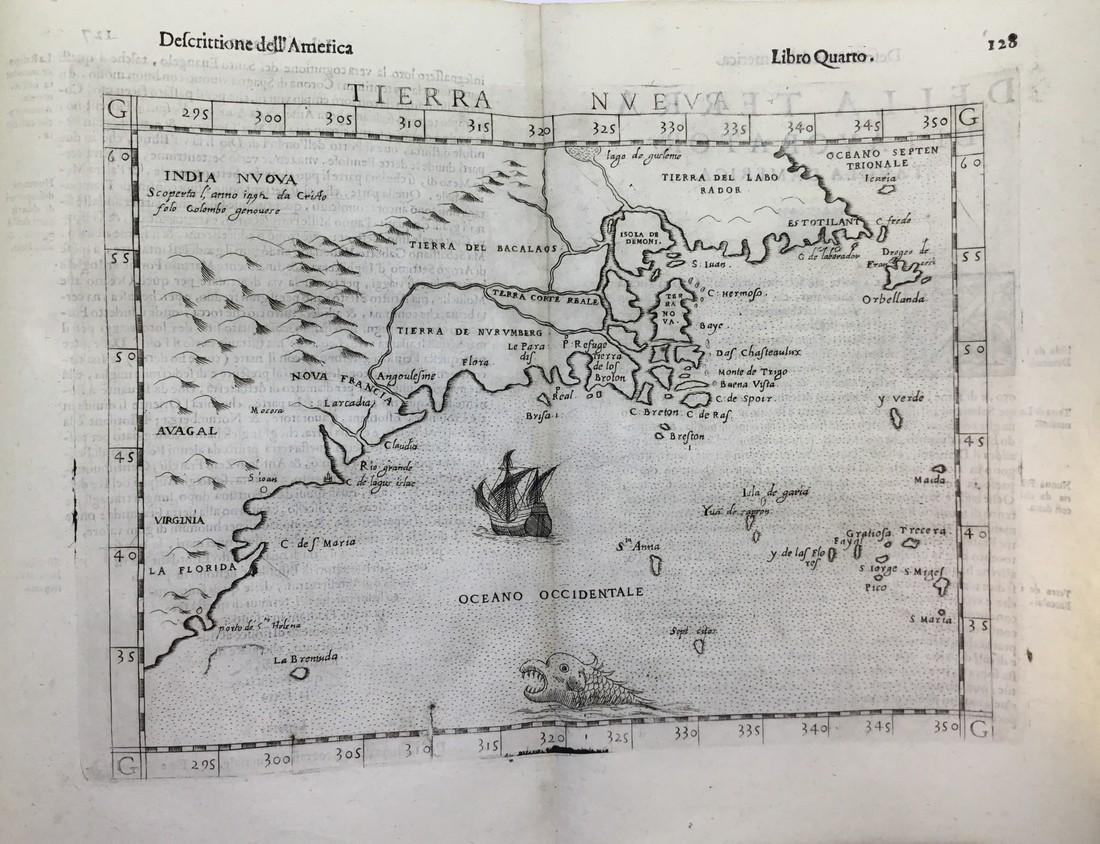 Descrittione dell'America
Libro Quarto.
128
TIERRA NVEVA
G
295
300
305
310
315
320
325
330
335
340
345
350
G
60
INDIA NVOVA
Scoperta l'anno
da Cristo
folo Colombo genouese
TIERRA DEL LABO
RADOR
OCEANO SEPTEN
TRIONALE
Icaria
60
ESTOTILANT
C. frede
ISOLA DE
DEMONI.
TIERRA DEL BACALAOS
S. Iuan.
G. de labarador
55
55
Orbellanda
TERRA CORTE REALE
TER
RA NO
VA.
C. Hermoso.
TIERRA DE NVRVMBERG
Baye.
50
Le Para
dis
P. Refuge
tierra
de los
Broton
Das Chasteaulux
50
Flora
Monte de Trigo
NOVA FRANCIA
Angoulesme
Buena Vista
Real
C. de Spoir.
Brisa
Larcadia
C. Breton
C de Ras.
y Verde.
Mocosa
AVAGAL
Breston
Claudia
45
45
Rio grande
C. de lagus islae
S ioan
Maida
VIRGINIA
Isla de garia
Gratiosa
Trecera
40
C. de S. Maria
Sta Anna
y de las Flo
res
Fayal
40
LA FLORIDA
S Iorge
S. Migel
Pico
OCEANO OCCIDENTALE
S Maria
porto de Sta Helena
35
35
La Bermuda
G
295
300
305
310
315
320
325
330
335
340
345
350
G